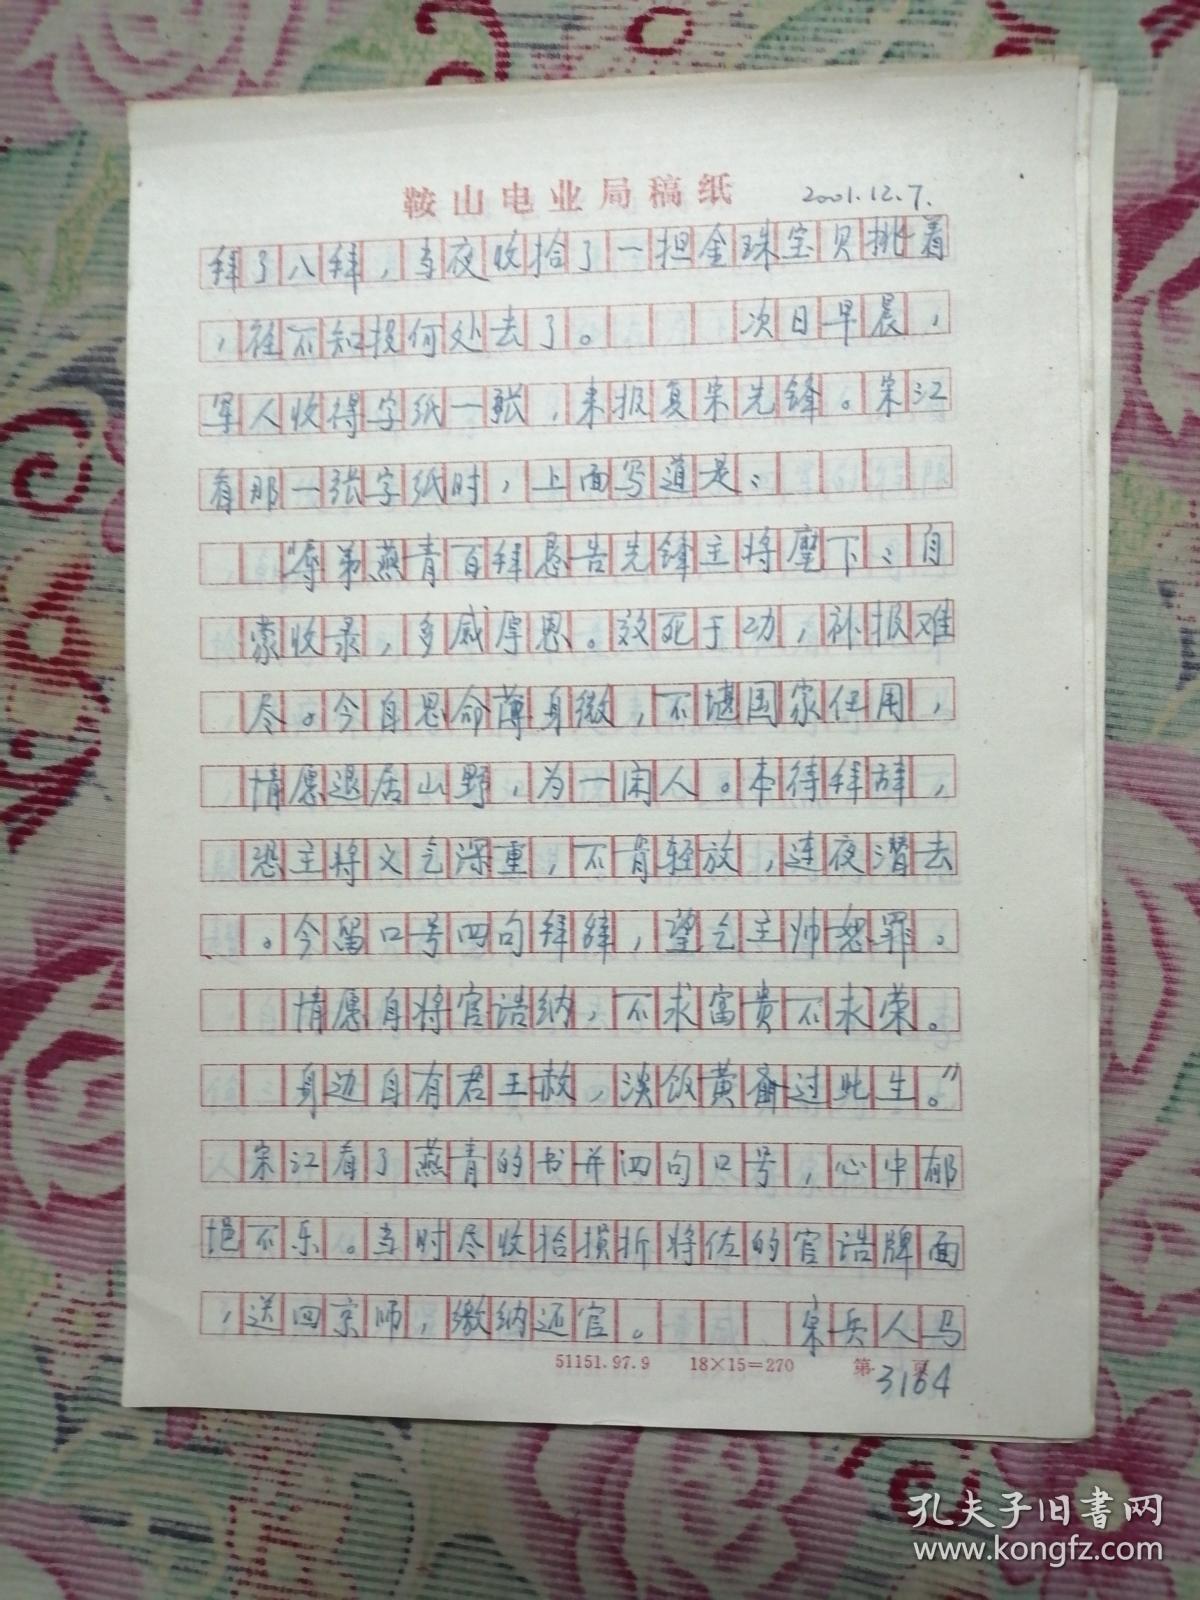 鞍山电业局稿纸 2001.12.7.
拜了八拜，当夜收拾了一担金珠宝贝挑着
，往不知投何处去了。 次日早晨，
军人收得字纸一张，来报复宋先锋。宋江
看那一张字纸时，上面写道是：
“辱弟燕青百拜恳告先锋主将麾下：自
蒙收录，多感厚恩。效死于功，补报难
尽。今自思命薄身微，不堪国家任用，
情愿退居山野，为一闲人。本待拜辞，
恐主将义气深重，不肯轻放，连夜潜去
。今留口号四句拜辞，望乞主帅恕罪。
情愿自将官诰纳，不求富贵不求荣。
身边自有君王赦，淡饭黄齑过此生。”
宋江看了燕青的书并四句口号，心中郁
悒不乐。当时尽收拾损折将佐的官诰牌面
，送回京师，缴纳还官。 宋兵人马
51151.97.9 18×15=270 第 页
3164
孔夫子旧书网
www.kongfz.com